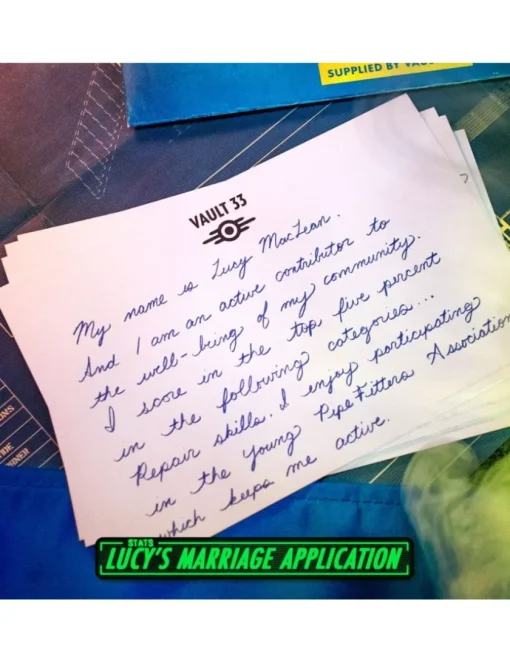 SUPPLIED BY VAU
VAULT 33
My name is Lucy MacLean.
And I am an active contributor to
the well-being of my community.
I score in the top five percent
in the following categories...
Repair skills. I enjoy participating
in the young PipeFitters Association
which keeps me active.
STATS
LUCY'S MARRIAGE APPLICATION